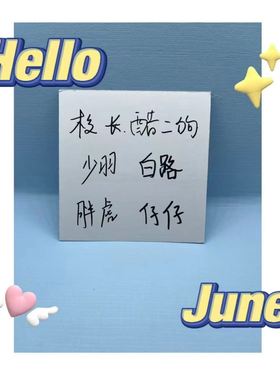 Hello
校长.酷二的
少羽 白路
胖虎 仔仔
June